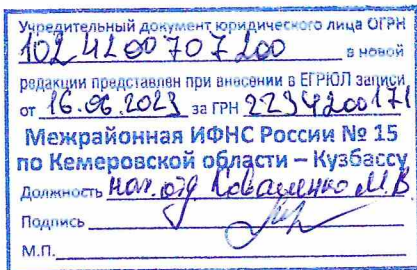 Учредительный документ юридического лица ОГРН
1024200707200 в новой
редакции представлен при внесении в ЕГРЮЛ записи
от 16.06.2023 за ГРН 2234200171
Межрайонная ИФНС России № 15
по Кемеровской области – Кузбассу
Должность нач. отд Коваленко М.В
Подпись
М.П.